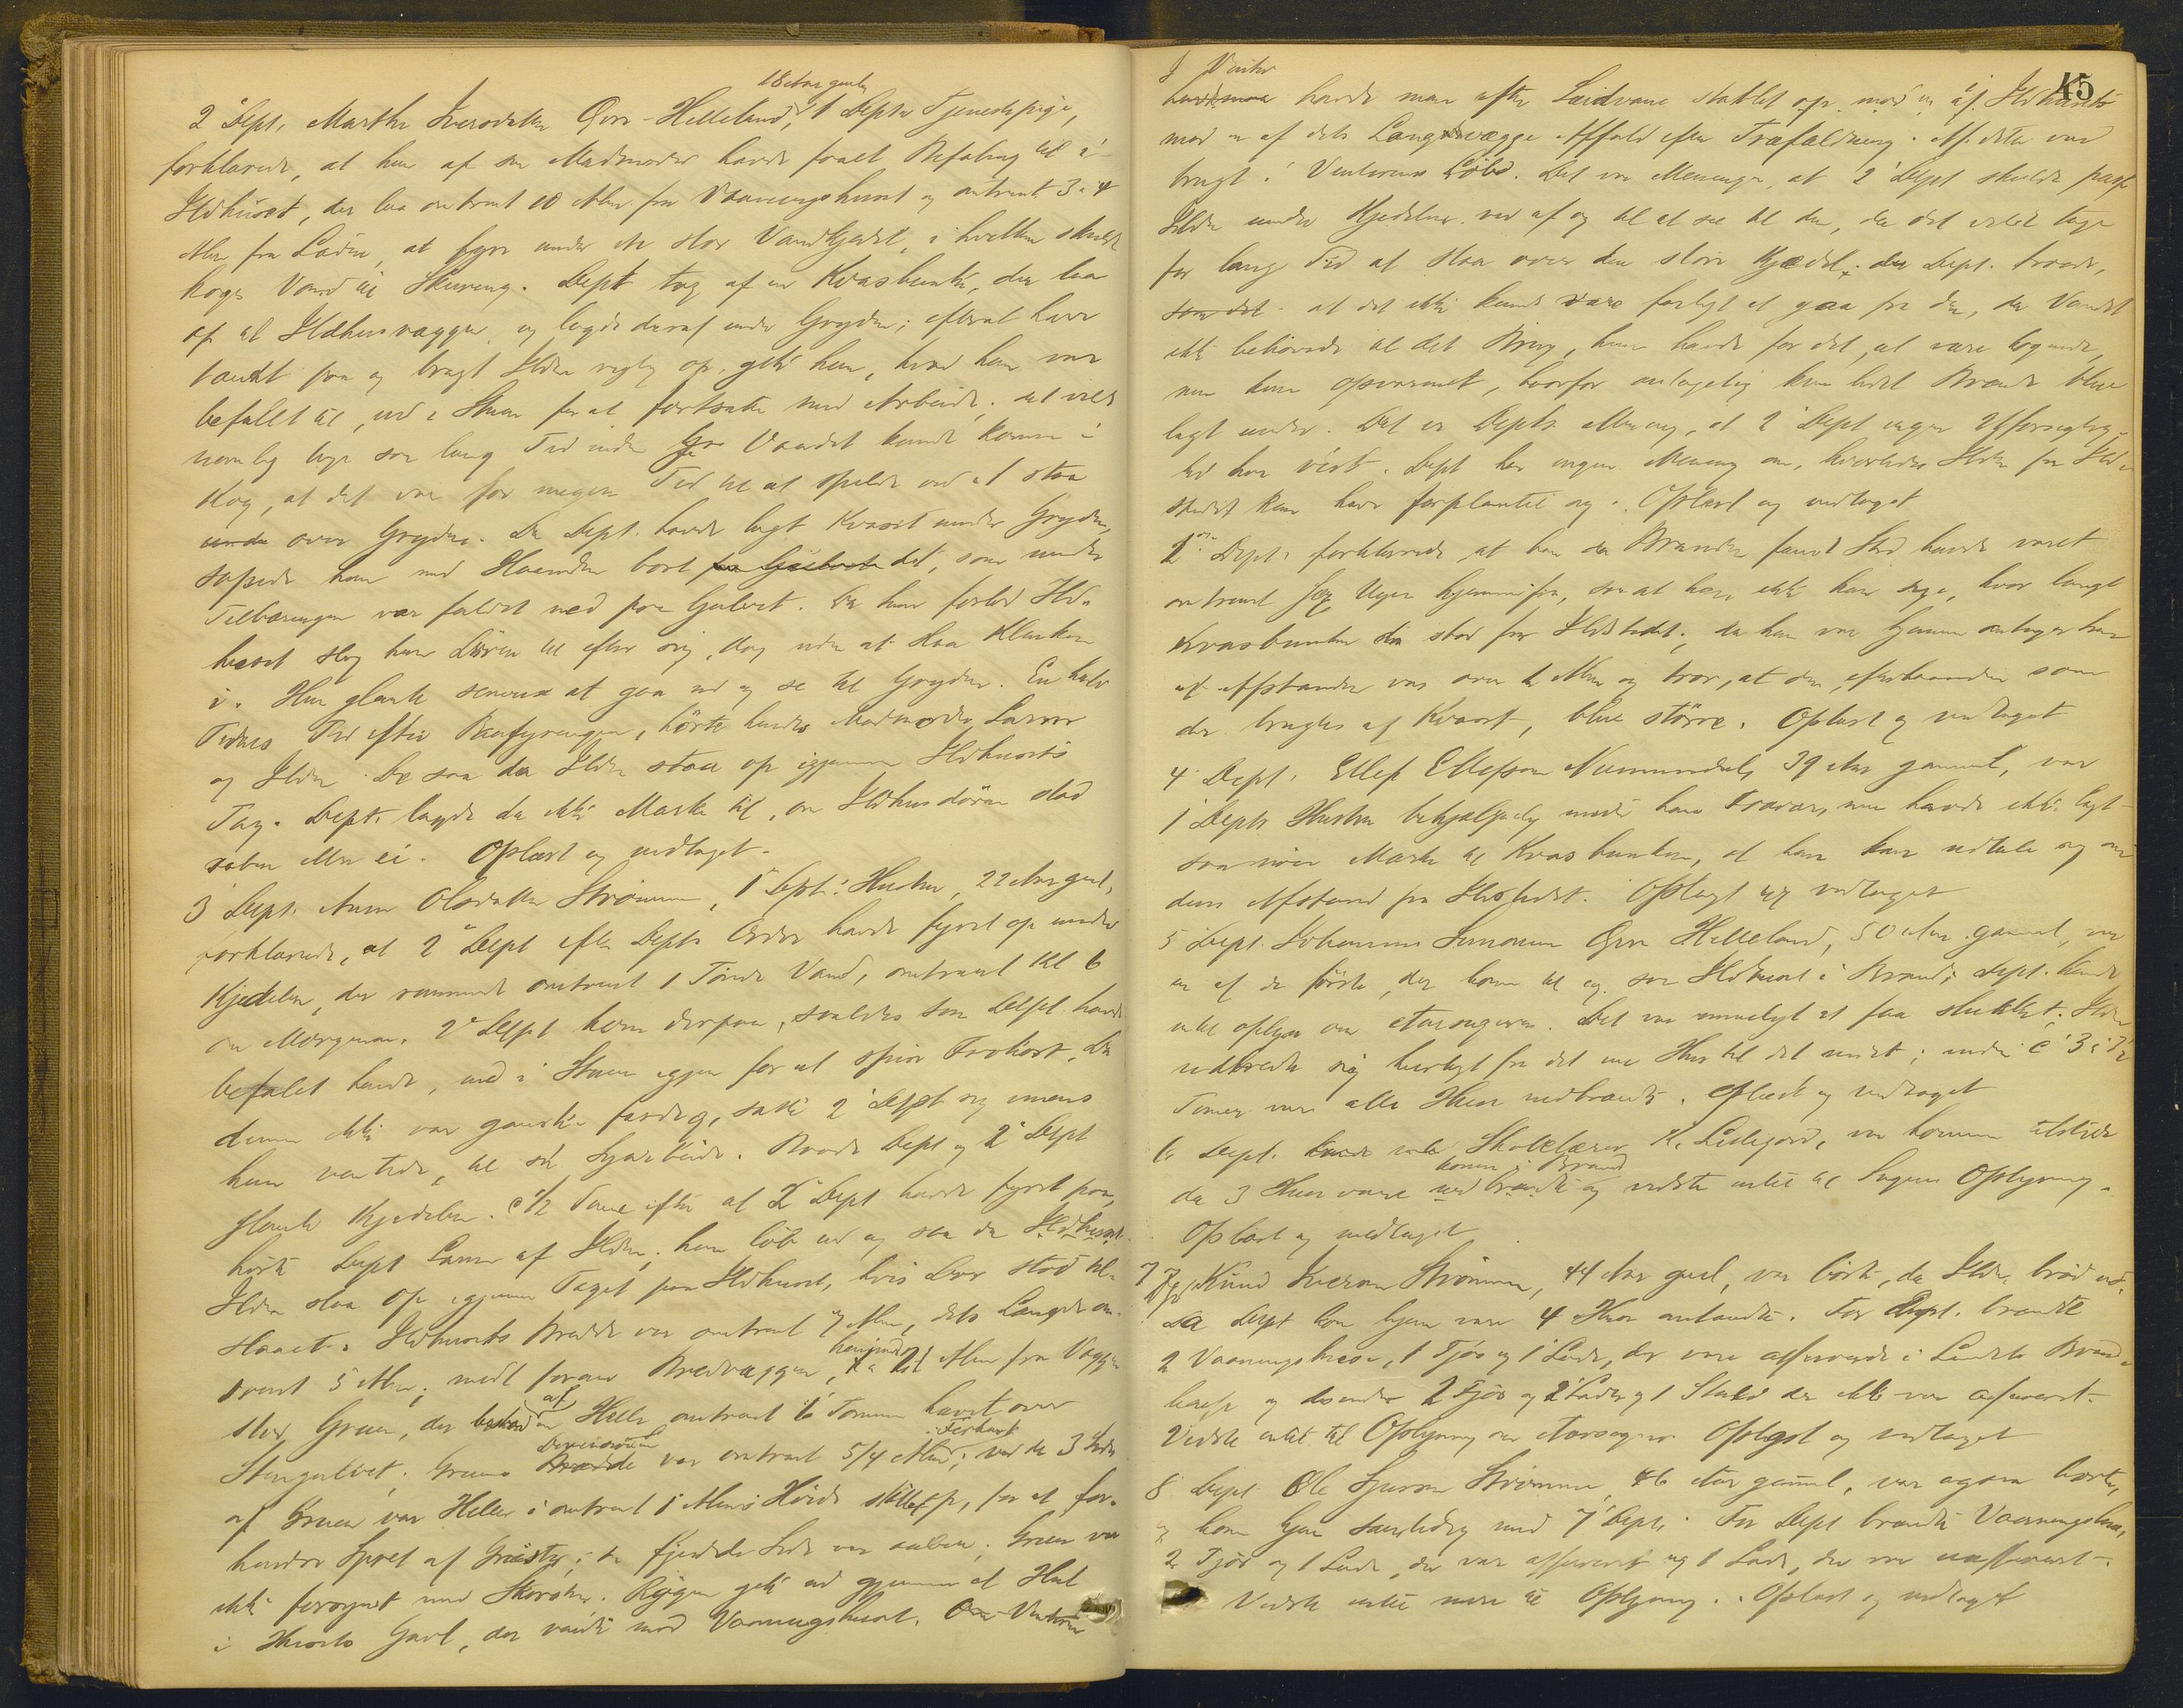 18 Aar gml
2' Dept. Marthe Iversdatter Øvre-Helleland, 1' Depts Tjenestepige,
forklarede, at hun af sin Madmoder havde faaet Befaling til i
Ildhuset, der laa omtrent 10 Alen fra Vaaningshuset og omtrent 3 à 4
Alen fra Laden, at fyre under en stor Vandkjedel, i hvilken skulde
koges Vand til Skuring. Dept tog af en Kvasbunke, der laa
op til Ildhusvæggen og lagde deraf under Gryden; efterat have
tændt paa og bragt Ilden rigtig op, gik hun, hvad hun var
befalet til, ind i Stuen for at fortsætte med Arbeide; det vilde
nemlig tage saa lang Tid inden Vandet kunde komme i
Kog, at det var for megen Tid til at spilde ved at staa
under over Gryden. Da Dept. havde lagt Kvaset under Gryden,
sopede hun med Haanden bort fra Gulvet det, som under
Tilbæringen var faldt ned paa Gulvet. Da hun forlod Ild-
huset slog hun Døren til efter sig, dog uden at slaa Klinken
i. Hun glemte senere at gaa ud og se til Gryden. En halv
Times Tid efter Paafyringen, hørte hendes Madmoder Larm
og Ilden. De saa da Ilden staa op igjennem Ildhusets
Tag. Dept. lagde da ikke Mærke til, om Ildhusdøren stod
aaben eller ei. Oplæst og vedtaget.
3' Dept. Anne Olsdatter Strømmen, 1' Depts Hustru, 22 Aar gml,
forklarede, at 2' Dept efter Depts Ordre havde fyret op under
Kjedelen, der rummede omtrent 1 Tønde Vand, omtrent Kl 6
om Morgenen. 2' Dept kom derpaa, saaledes som Dept havde
befalet hende, ind i Stuen igjen for at spise Frokost. Da
denne ikke var ganske færdig, satte 2' Dept sig imens
hun ventede, til sit Syarbeide. Baade Dept og 2' Dept
glemte Kjedelen. c 1/2 Time efter at 2' Dept havde fyret paa,
hørte Dept Larm af Ilden; hun løb ud og saa da Ildhuset
Ilden staa op igjennem Taget paa Ildhuset, hvis Dør stod til-
slaaet. Ildhusets Bredde var omtrent 7 Alen, dets Længde om-
trent 5 Alen; midt foran Bredvæggen, henimod 1 Alen fra Væggen
stod Gruen, der bestod af en Helle omtrent 6 Tommer hævet over
Stengulvet; Gruens Dimension Bredde var omtrent 5/4 Alen i Firkant; ved de 3 Sider
af Gruen var Heller i omtrent 1 Alens Høide stillet op, for at for-
hindre Spred af Gnister; den fjerde Side var aaben; Gruen var
ikke forsynet med Skorsten. Røgen gik ud gjennem et Hul
i Husets Gavl, der vendte mod Vaaningshuset. Om Vinteren
45
I Vinter
havde man havde man efter Sædvane stablet op mod en af Ildhusets
mod en af dets Langvægge Affald efter Træfældning. Af dette var
brugt i Vinterens Løb. Det var Meningen, at 2' Dept skulde passe
Ilden under Kjedelen ved af og til at see til den, da det vilde tage
for lang Tid at staa over den store Kjedel; da Dept. troede,
som det at det ikke kunde være farligt at gaa fra den, da Vandet
ikke behøvede til det Brug, hun havde for det, at være kogende,
men kun opvarmet, hvorfor antagelig kun lidet Brænde blev
lagt under. Det er Depts Mening, at 2' Dept ingen Uforsigtig-
hed har vist. Dept har ingen Mening om, hvorledes Ilden fra Ild-
stedet kan have forplantet sig. Oplæst og vedtaget
1ste Dept. forklarede, at han da Branden fandt Sted havde været
omtrent sex Uger hjemmefra, saa at han ikke kan sige, hvor langt
Kvasbunken da stod fra Ildstedet; da han var hjemme antager han
at Afstanden var over 1 Alen og tror, at den, efterhaanden som
der brugtes af Kvaset, blev større. Oplæst og vedtaget
4' Dept. Ellef Ellefsen Nummedal, 39 Aar gammel, var
1' Depts Hustru behjælpelig under hans Fravær, men havde ikke lagt
saa nøie Mærke til Kvasbunken, at han kan udtale sig om
dens Afstand fra Ildstedet. Oplagt og vedtaget
5' Dept. Johannes Simonsen Øvre Helleland, 50 Aar gammel, var
en af de første, der kom til og saa Ildhuset i Brand; Dept. kunde
intet oplyse om Aarsagen. Det var umuligt at faa slukket; Ilden
udbredte sig hurtigt fra det ene Hus til det andet; inden c 3 à
Timer vare alle Huse nedbrændte. Oplæst og vedtaget
6 Dept. Skolelærer K. Lidegjerd, var kommen tilstede
da 3 Huse vare komne i Brand nedbrændte og vidste intet til Sagens Oplysning.
Oplæst og vedtaget
7' Dept Knud Iversen Strømmen, 44 Aar gml, var borte, da Ilden brød ud.
Da Dept kom hjem vare 4 Huse antændte. For Dept. brændte
2 Vaaningshuse, 1 Fjøs og 1 Lade, der vare assurerede i Landets Brand-
kasse og desuden 2 Fjøs og 2 Lader og 1 Stald der ikke var assureret.
Vidste intet til Oplysning om Aarsagen. Oplæst og vedtaget
8' Dept Ole Sjursen Strømmen, 46 Aar gammel, var ogsaa borte,
og kom hjem samtidig med 7' Dept. For Dept brændte Vaaningshus,
2 Fjøs og 1 Lade, der var assureret og 1 Lade, der var uassureret.
Vidste intet mere til Oplysning. Oplæst og vedtaget